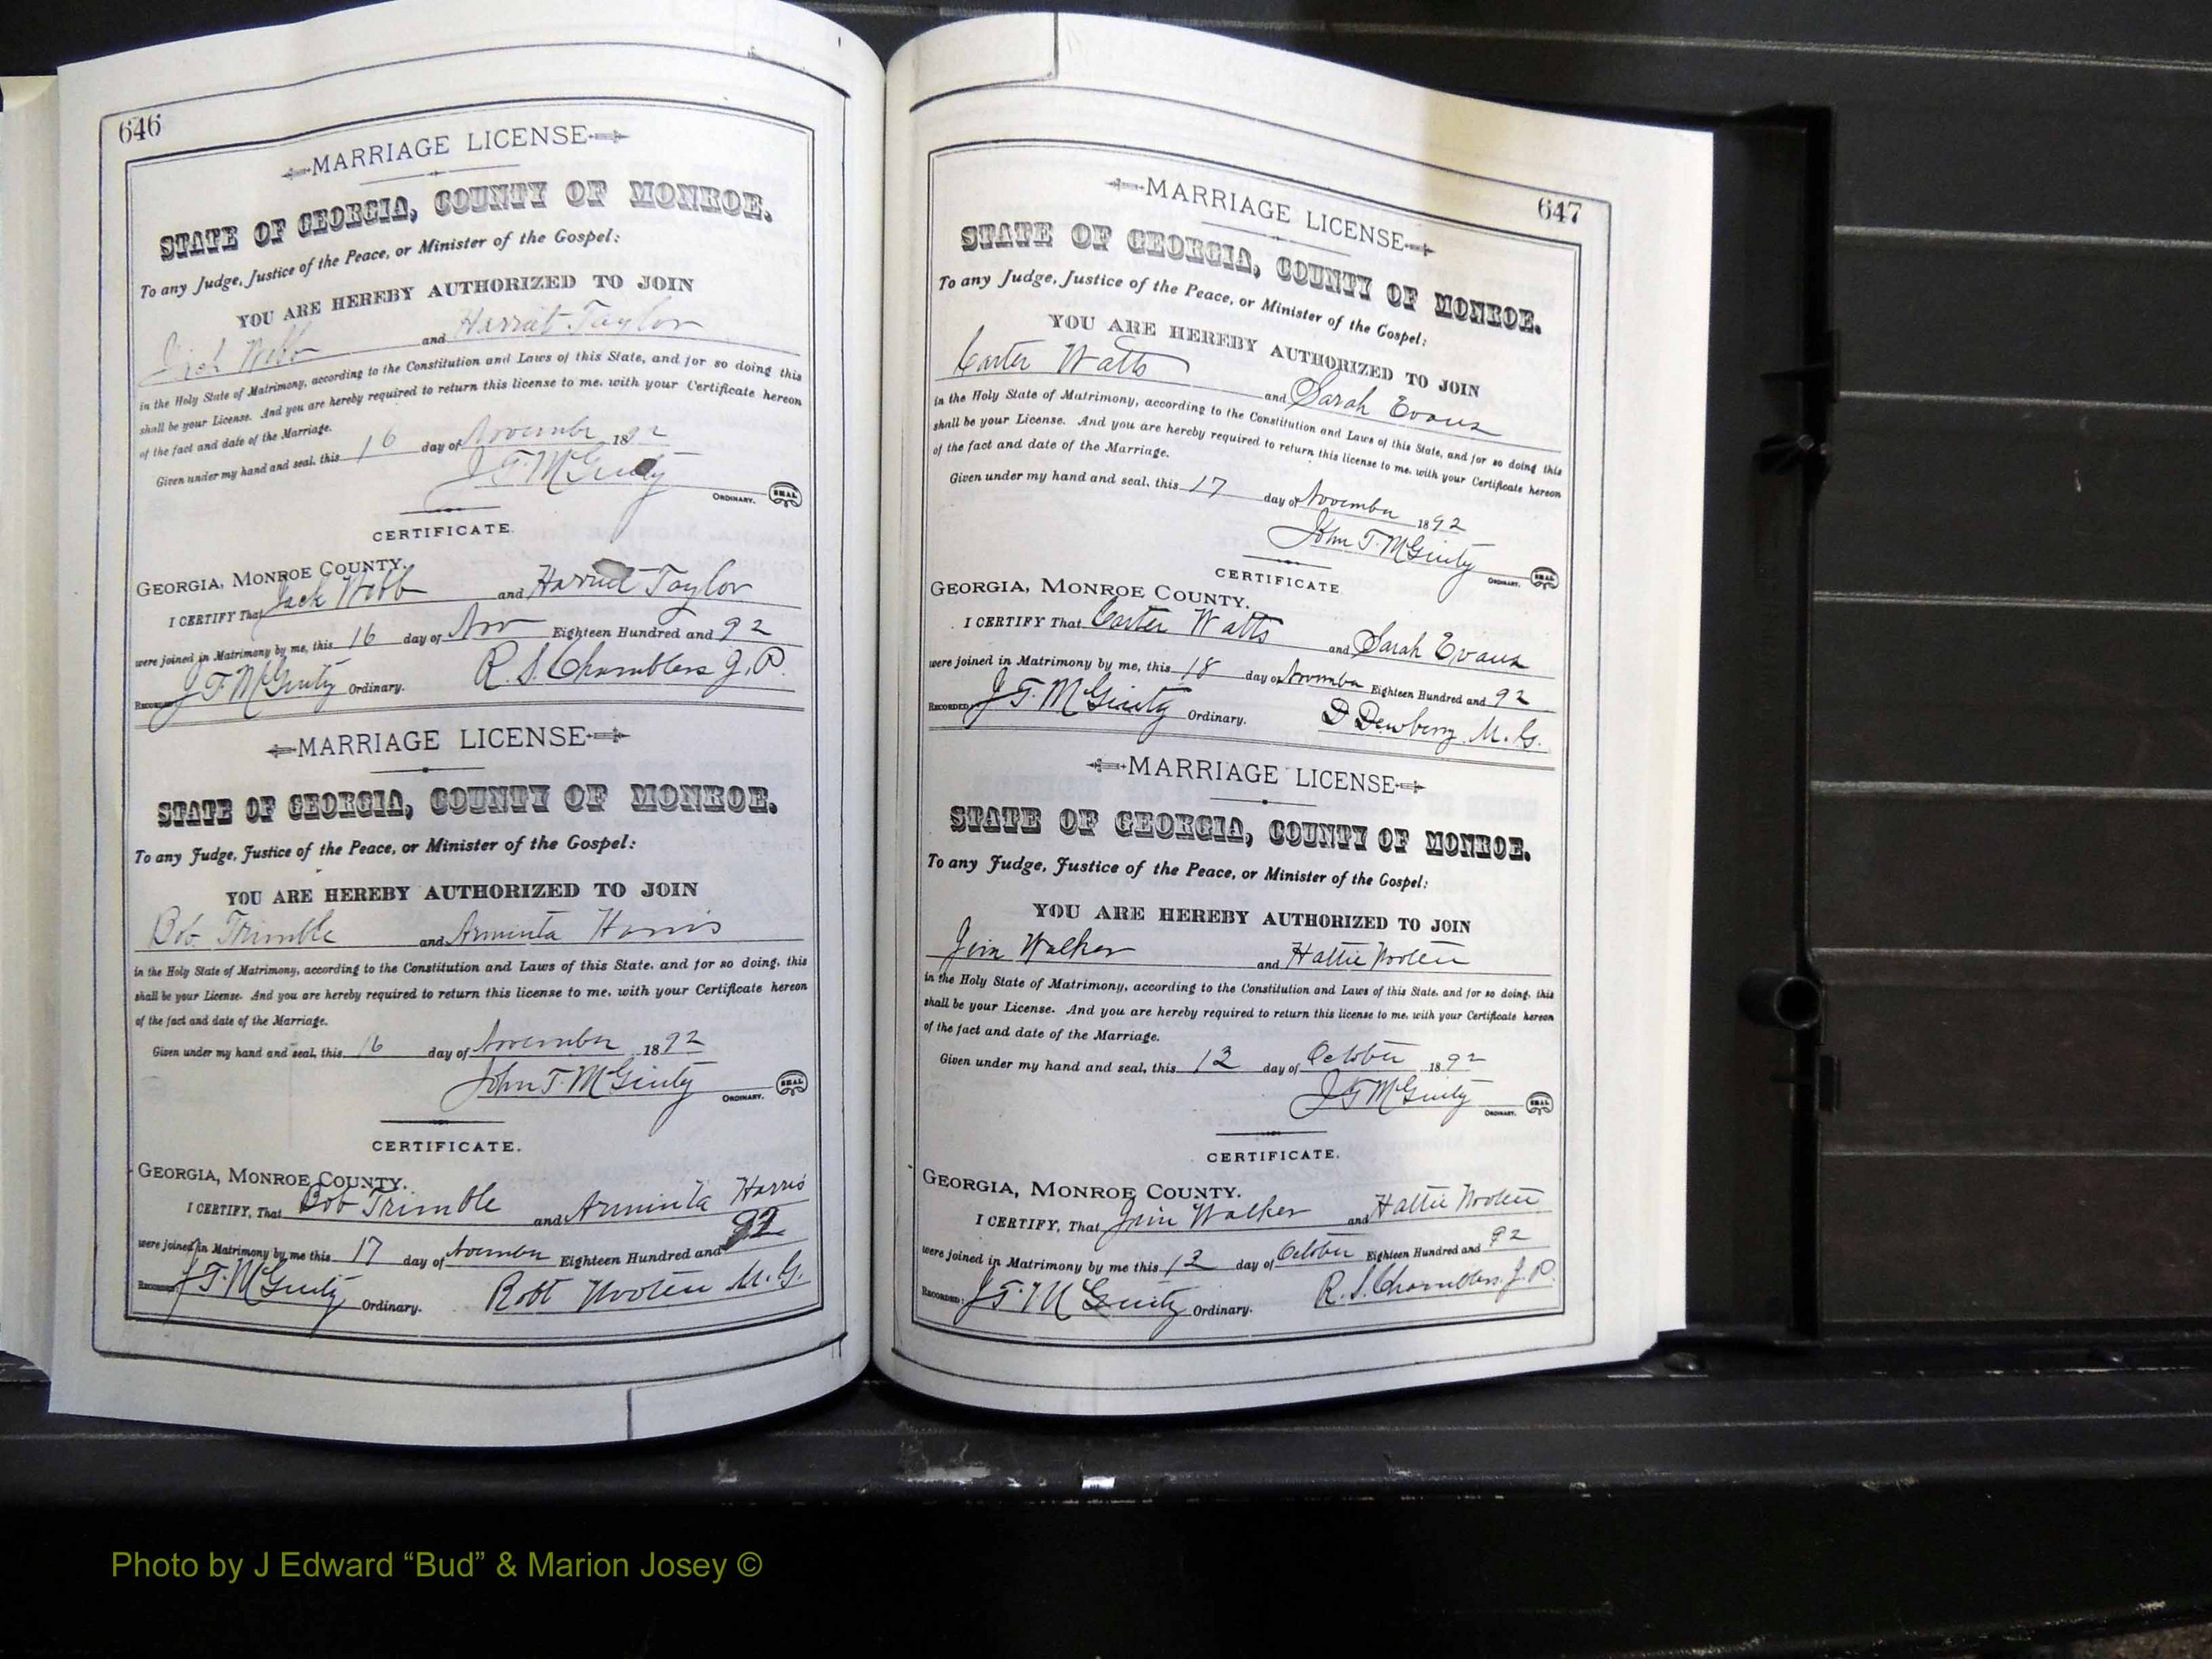 646
MARRIAGE LICENSE
STATE OF GEORGIA, COUNTY OF MONROE.
To any Judge, Justice of the Peace, or Minister of the Gospel:
YOU ARE HEREBY AUTHORIZED TO JOIN
Jack Webb and Harriet Taylor
in the Holy State of Matrimony, according to the Constitution and Laws of this State, and for so doing this
shall be your License. And you are hereby required to return this license to me, with your Certificate hereon
of the fact and date of the Marriage.
Given under my hand and seal, this 16 day of November 1892
J. T. McGinty
ORDINARY. SEAL
CERTIFICATE.
GEORGIA, MONROE COUNTY.
I CERTIFY That Jack Webb and Harriet Taylor
were joined in Matrimony by me, this 16 day of Nov Eighteen Hundred and 92
R. S. Chambliss J. P.
RECORDED J T. McGinty Ordinary.
MARRIAGE LICENSE
STATE OF GEORGIA, COUNTY OF MONROE.
To any Judge, Justice of the Peace, or Minister of the Gospel:
YOU ARE HEREBY AUTHORIZED TO JOIN
Bob Trimble and Arminta Harris
in the Holy State of Matrimony, according to the Constitution and Laws of this State, and for so doing, this
shall be your License. And you are hereby required to return this license to me, with your Certificate hereon
of the fact and date of the Marriage.
Given under my hand and seal, this 16 day of November 1892
John T. McGinty
ORDINARY. SEAL
CERTIFICATE.
GEORGIA, MONROE COUNTY.
I CERTIFY, That Bob Trimble and Arminta Harris
were joined in Matrimony by me this 17 day of November Eighteen Hundred and 92
RECORDED J T. McGinty Ordinary. Robt Wooten M. G.
647
MARRIAGE LICENSE
STATE OF GEORGIA, COUNTY OF MONROE.
To any Judge, Justice of the Peace, or Minister of the Gospel:
YOU ARE HEREBY AUTHORIZED TO JOIN
Carter Watts and Sarah Evans
in the Holy State of Matrimony, according to the Constitution and Laws of this State, and for so doing this
shall be your License. And you are hereby required to return this license to me, with your Certificate hereon
of the fact and date of the Marriage.
Given under my hand and seal, this 17 day of November 1892
John T. McGinty
ORDINARY. SEAL
CERTIFICATE
GEORGIA, MONROE COUNTY.
I CERTIFY That Carter Watts and Sarah Evans
were joined in Matrimony by me, this 18 day of November Eighteen Hundred and 92
RECORDED J T. McGinty Ordinary. D Dewberry M. G.
MARRIAGE LICENSE
STATE OF GEORGIA, COUNTY OF MONROE.
To any Judge, Justice of the Peace, or Minister of the Gospel:
YOU ARE HEREBY AUTHORIZED TO JOIN
Jim Walker and Hattie Wooten
in the Holy State of Matrimony, according to the Constitution and Laws of this State, and for so doing, this
shall be your License. And you are hereby required to return this license to me, with your Certificate hereon
of the fact and date of the Marriage.
Given under my hand and seal, this 12 day of October 1892
J T McGinty
ORDINARY. SEAL
CERTIFICATE.
GEORGIA, MONROE COUNTY.
I CERTIFY, That Jim Walker and Hattie Wooten
were joined in Matrimony by me this 12 day of October Eighteen Hundred and 92
RECORDED: J T. McGinty Ordinary. R. S. Chambliss J. P.
Photo by J Edward “Bud” & Marion Josey ©